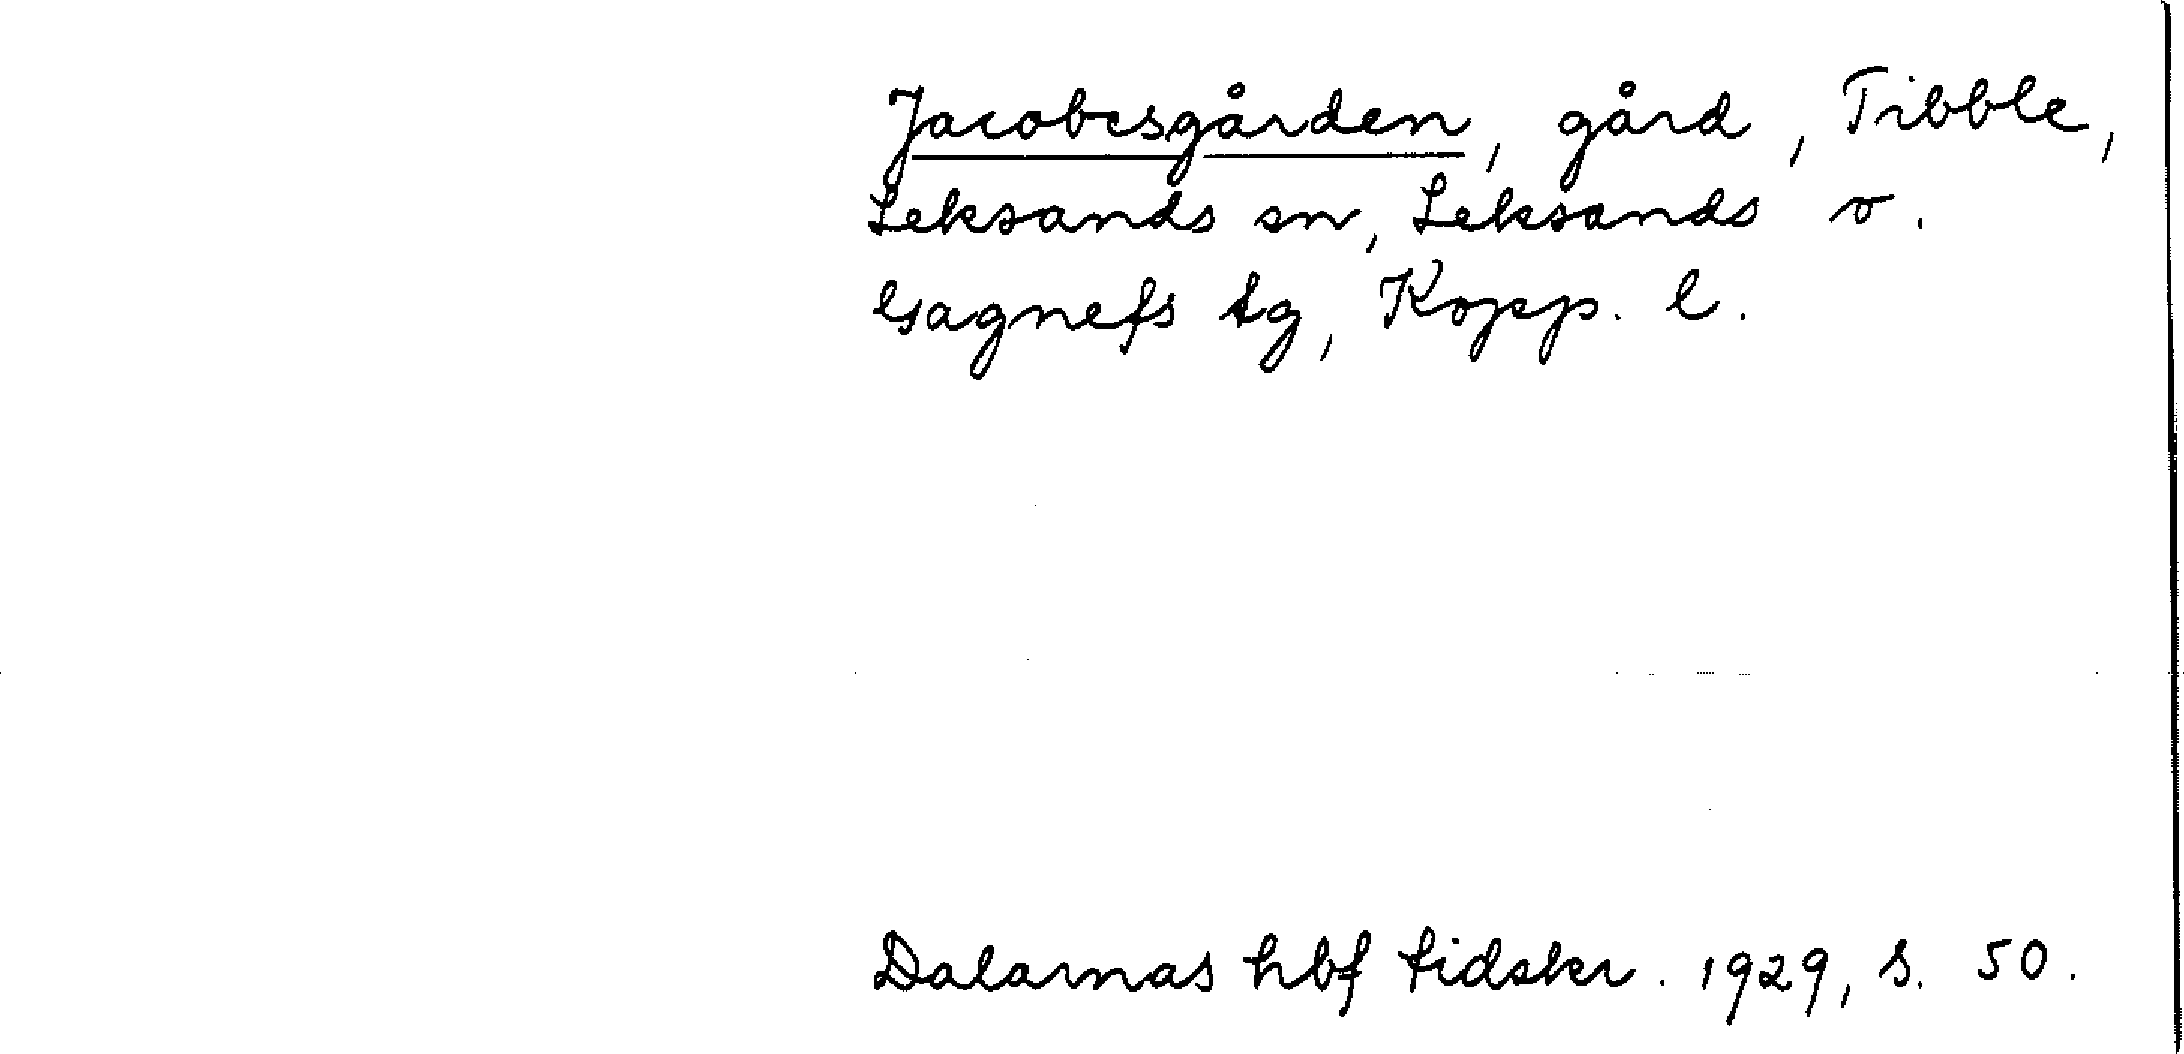 Jacobesgården, gård, Tibble,
Leksands sn, Leksands o.
Gagnefs tg, Kopp. l.
Dalarnas hbf tidskr. 1929, s. 50.